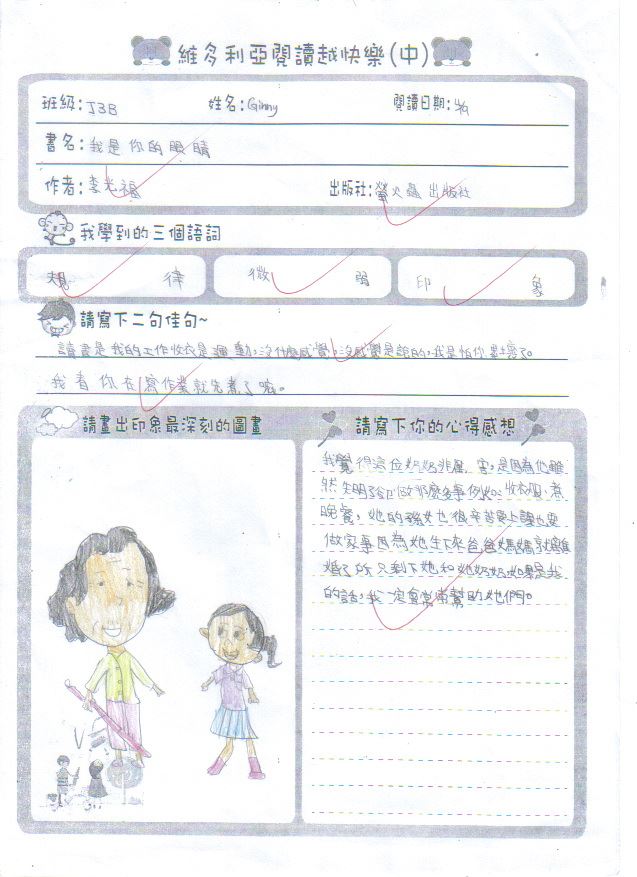 維多利亞閱讀越快樂(中)
班級:J3B 姓名:Ginny 閱讀日期:4/9
書名:我是你的眼睛
作者:李光福 出版社:螢火蟲出版社
我學到的三個語詞
規律 微弱 印象
請寫下二句佳句~
讀書是我的工作收衣是運動,沒什麼感覺。沒感覺是說的,我是怕你累壞了。
我看你在寫作業就先煮了飯。
請畫出印象最深刻的圖畫 請寫下你的心得感想
我覺得這位奶奶非厲害,是因為他雖
然失明了卻做那麼多事例如:收衣服,煮
晚餐,她的孫女也很辛苦要上課也要
做家事因為她生下來爸爸媽媽就離
婚了所只剩下她和她奶奶,如果是我
的話,我一定會常常幫助她們。